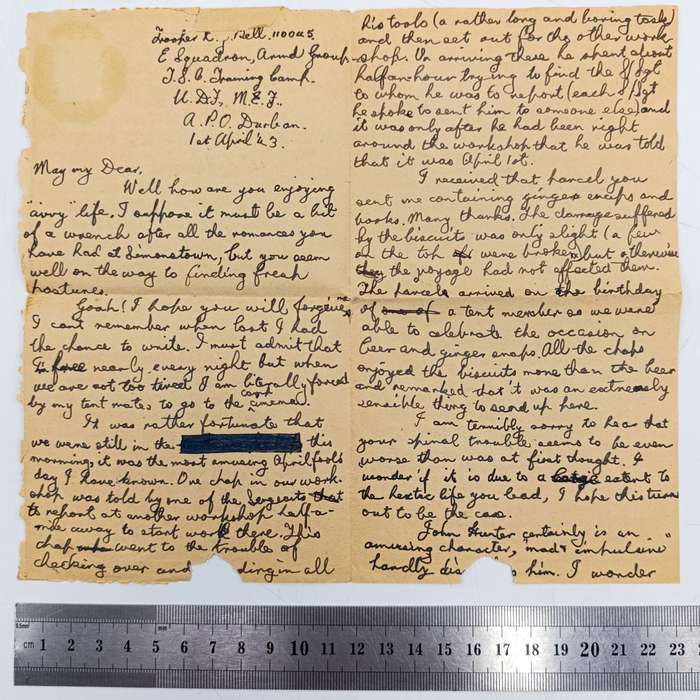 Trooper R. Bell. 110045
E Squadron, Armd Group.
T.S.C. Training Camp.
U.D.F, M.E.F.
A.P.O. Durban.
1st April 43.
May my Dear,
Well how are you enjoying
"avvy" life, I suppose it must be a bit
of a wrench after all the romances you
have had at Simonstown, but you seem
well on the way to finding fresh
pastures.
Gosh! I hope you will forgive me
I cant remember when last I had
the chance to write. I must admit that
nearly every night but when
we are not too tired I am literally forced
by my tent mates to go to the camp cinema.
It was rather fortunate that
we were still in the this
morning, it was the most amusing Aprilfools
day I have known. One chap in our work-
shop was told by one of the Sergeants that
to report at another workshop half-a-
mile away to start work there. This
chap went to the trouble of
checking over and ding in all
his tools (a rather long and boring task)
and then set out for the other work-
shop. On arriving there he spent about
half-an-hour trying to find the S/Sgt
to whom he was to report (each S/Sgt
he spoke to sent him to someone else) and
it was only after he had been right
around the workshop that he was told
that it was April 1st.
I received that parcel you
sent me containing ginger snaps and
books. Many thanks. The damage suffered
by the biscuits was only slight (a few
on the top were broken) but otherwise
the voyage had not affected them.
The parcels arrived on the birthday
of one of a tent member so we were
able to celebrate the occasion on
beer and ginger snaps. All the chaps
enjoyed the biscuits more than the beer
and remarked that it was an extremely
sensible thing to send up here.
I am terribly sorry to hear that
your spinal trouble seems to be even
worse than was at first thought. I
wonder if it is due to a large extent to
the hectic life you lead, I hope this turns
out to be the case.
John Hunter certainly is an
amusing character, "mad" "impulsive"
hardly him. I wonder
cm 1 2 3 4 5 6 7 8 9 10 11 12 13 14 15 16 17 18 19 20 21 22 23
0.5mm
mm